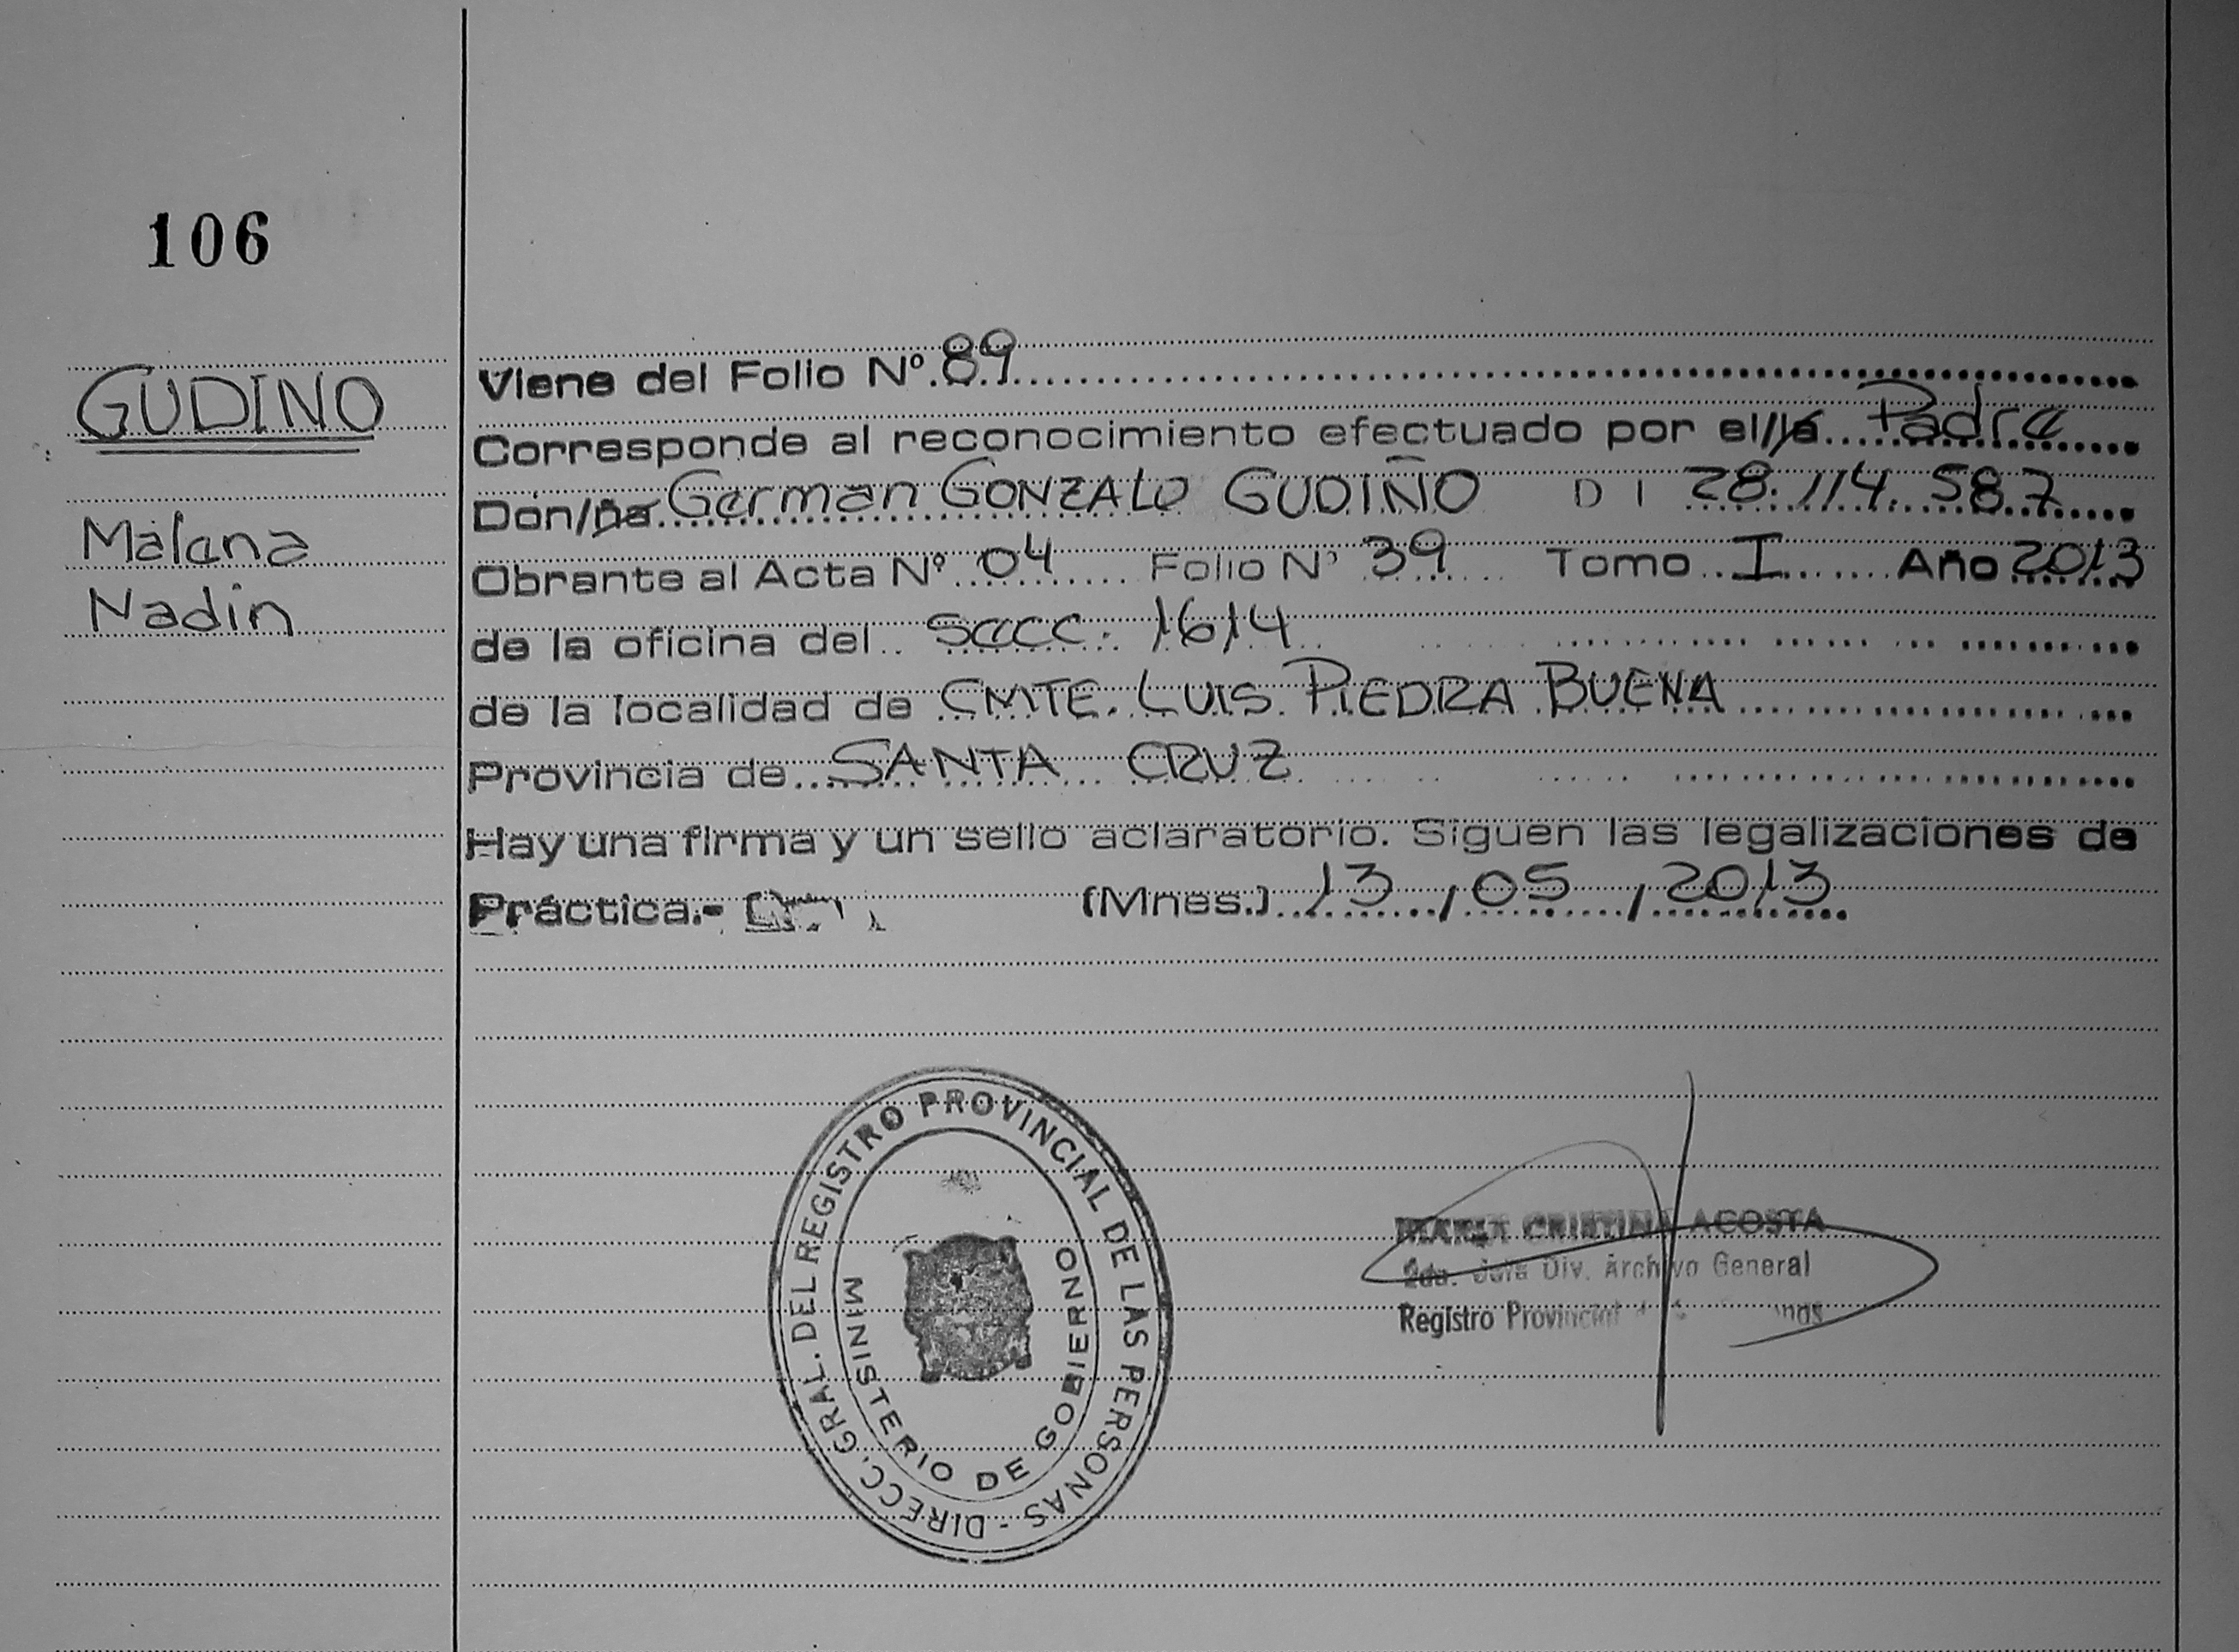 106
GUDINO
Malena
Nadin
Viene del Folio Nº 89
Corresponde al reconocimiento efectuado por el/la Padre
Don/ña German GONZALO GUDIÑO D I 28.114.587
Obrante al Acta Nº 04 Folio Nº 39 Tomo I Año 2013
de la oficina del Secc. 1614
de la localidad de CMTE. LUIS PIEDRA BUENA
Provincia de SANTA CRUZ
Hay una firma y un sello aclaratorio. Siguen las legalizaciones de
Práctica.- (Mnes.) 13/05/2013
DIRECC. GRAL. DEL REGISTRO PROVINCIAL DE LAS PERSONAS -
MINISTERIO DE GOBIERNO
MARIA CRISTINA ACOSTA
2da. Jefa Div. Archivo General
Registro Provincial